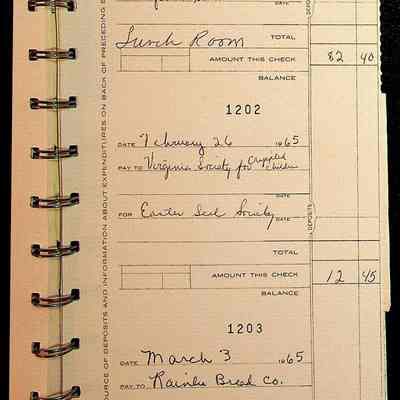 DATE
Lunch Room TOTAL
AMOUNT THIS CHECK 82 40
BALANCE
1202
DATE February 26 1965
PAY TO Virginia Society for Crippled Children
DATE
FOR Easter Seal Society DATE
TOTAL
AMOUNT THIS CHECK 12 45
BALANCE
1203
DATE March 3 1965
PAY TO Rainbo Bread Co.
DEPOSITS
DEPOSITS
OURCE OF DEPOSITS AND INFORMATION ABOUT EXPENDITURES ON BACK OF PRECEDING